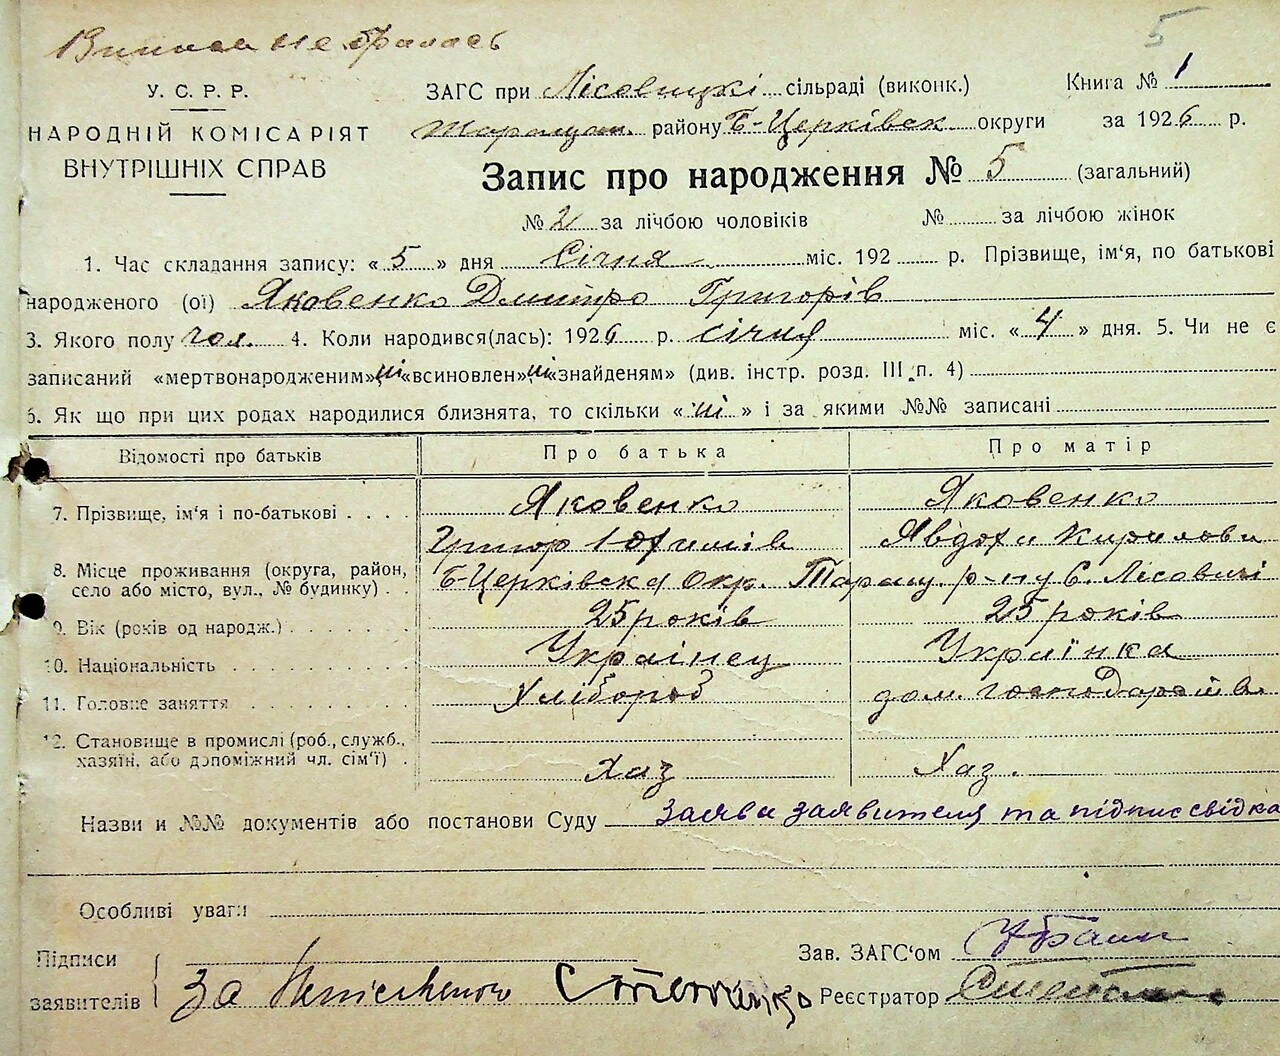 5
Виписи не бралась
У. С. Р. Р.
НАРОДНІЙ КОМІСАРІЯТ
ВНУТРІШНІХ СПРАВ
ЗАГС при Лісовицкі сільраді (виконк.) Книга № 1
Таращан. району Б-Церківск округи за 1926 р.
Запис про народження № 5 (загальний)
№ 2 за лічбою чоловіків № за лічбою жінок
1. Час складання запису: «5» дня Січня міс. 192 р. Прізвище, ім'я, по батькові
народженого (ої) Яковенко Дмитро Григорів
3. Якого полу чол. 4. Коли народився(лась): 1926 р. січня міс. «4» дня. 5. Чи не є
записаний «мертвонародженим» ні «всиновлен» ні «знайденям» (див. інстр. розд. III п. 4)
6. Як що при цих родах народилися близнята, то скільки «ні» і за якими №№ записані
Відомості про батьків Про батька Про матір
7. Прізвище, ім'я і по-батькові Яковенко Яковенко
Григор Юхимів Явдоха Кирилова
8. Місце проживання (округа, район, село або місто, вул., № будинку) Б-Церківска Окр. Таращ. р-ну С. Лісовичі
9. Вік (років од народж.) 25 років 25 років
10. Національність Украінец Украінка
11. Головне заняття Хлібороб дом. господарств.
12. Становище в промислі (роб., служб.,
хазяїн, або допоміжний чл. сім'ї) Хаз Хаз.
Назви и №№ документів або постанови Суду заява заявителя та підпис свідка
Особливі уваги
Підписи Зав. ЗАГС'ом
заявителів За Степанко Реєстратор